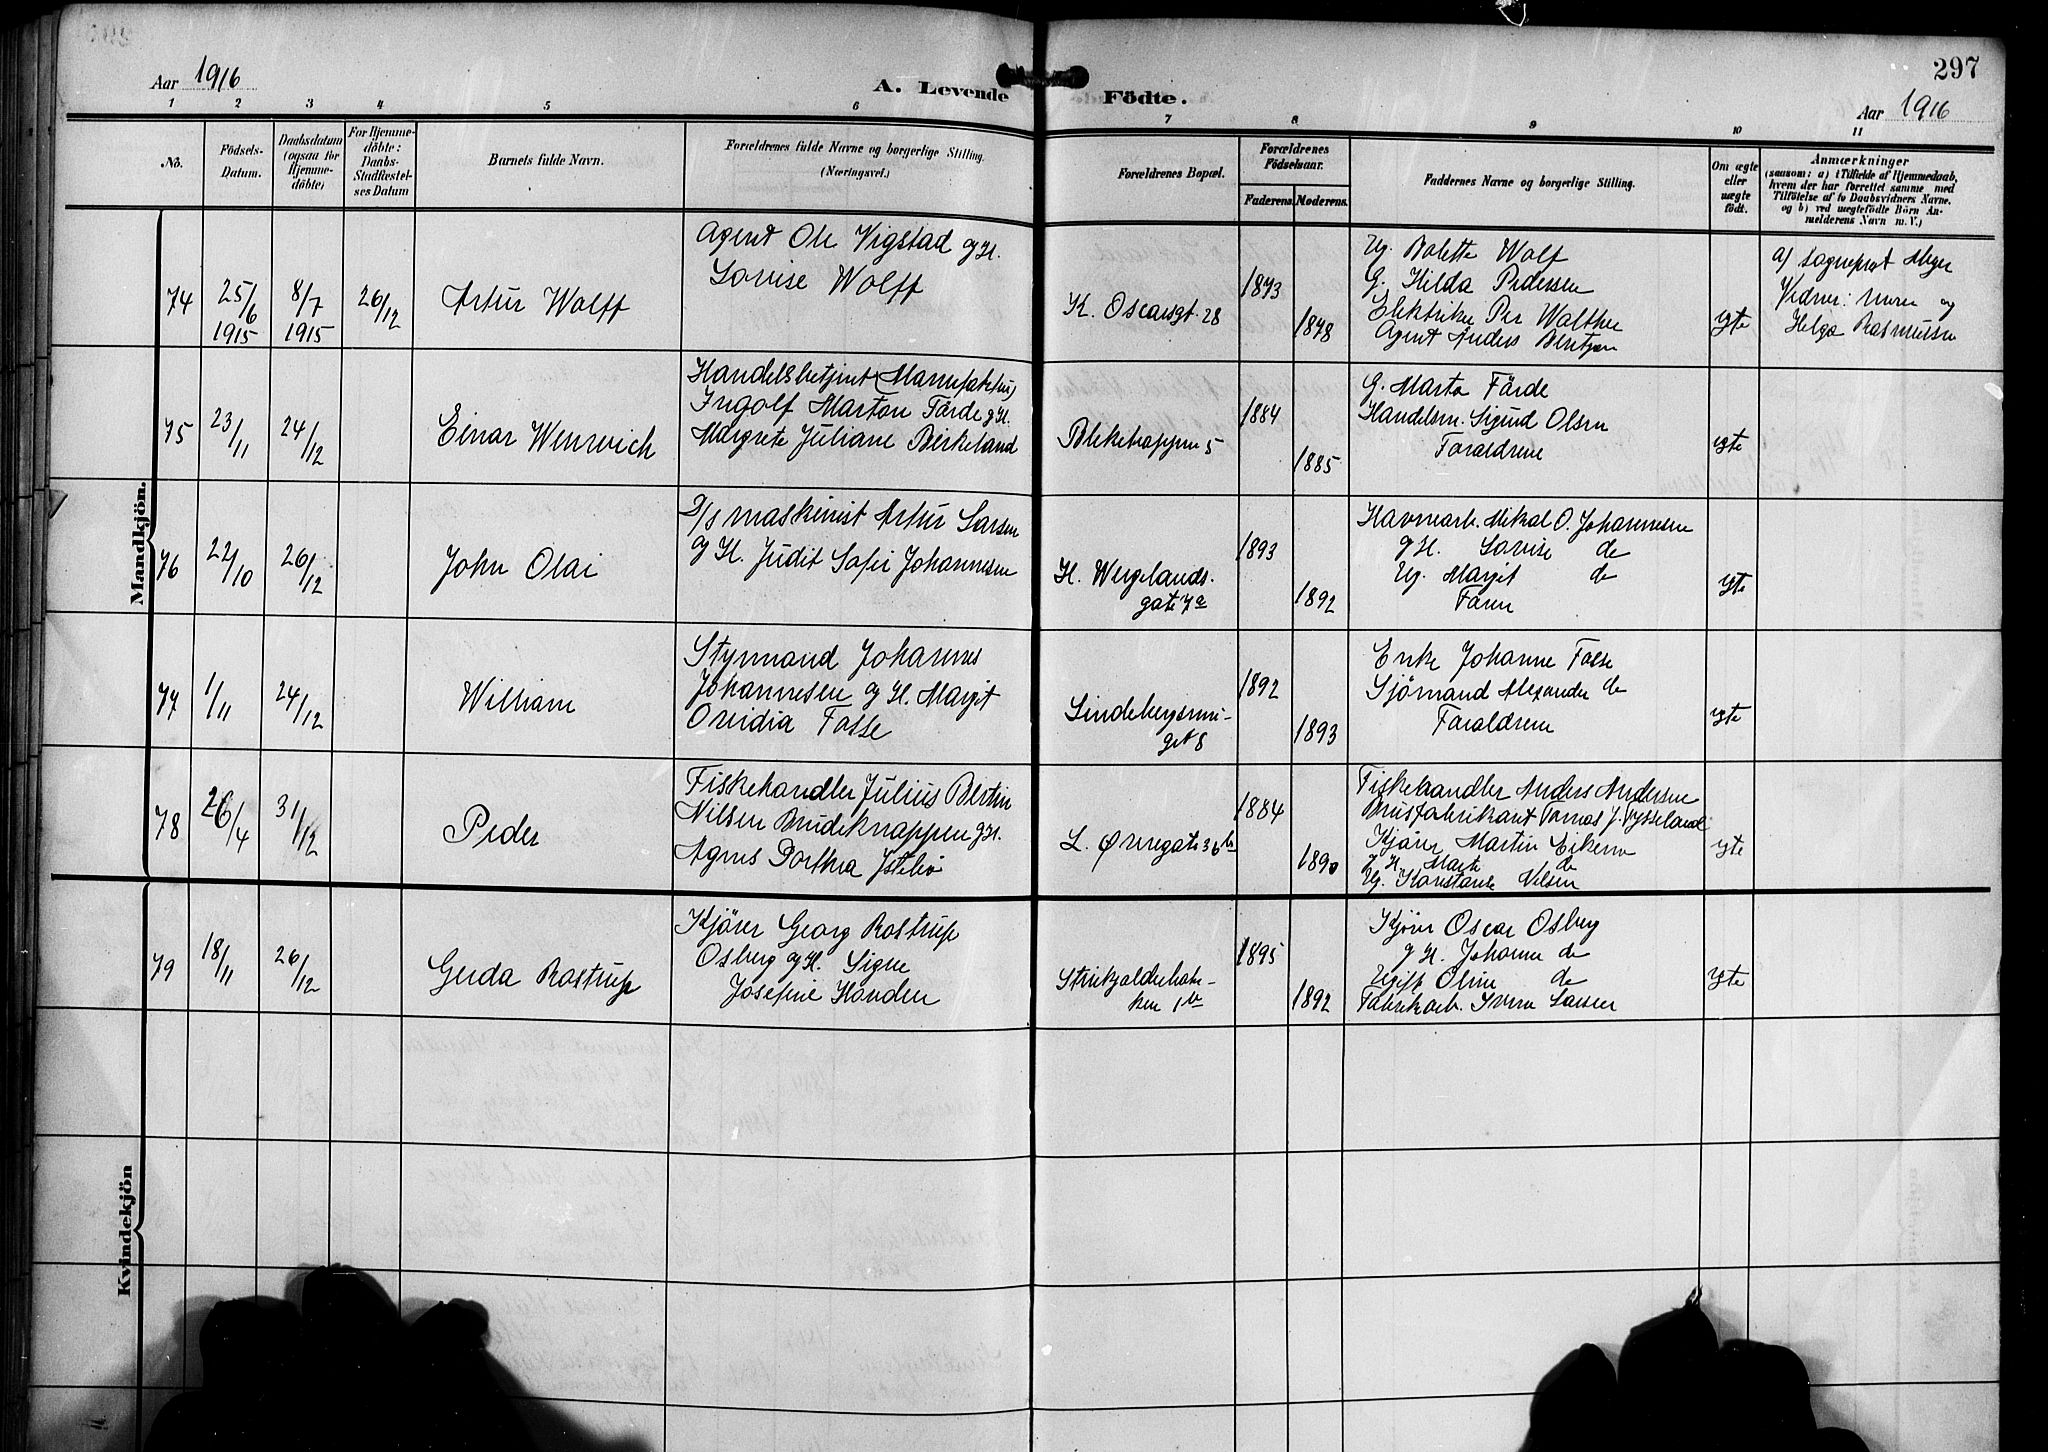 297
Aar 1916
A. Levende Födte.
Aar 1916
1 2 3 4 5 6 7 8 9 10 11
No.
Födsels-
Datum.
Daabsdatum
(ogsaa for
Hjemme-
döbte)
For Hjemme-
döbte:
Daabs-
Stadfæstel-
ses Datum
Barnets fulde Navn.
Forældrenes fulde Navne og borgerlige Stilling.
(Næringsvei.)
Forældrenes Bopæl.
Forældrenes
Födselsaar.
Faderens.
Moderens.
Faddernes Navne og borgerlige Stilling.
Om ægte
eller
uægte
födt.
Anmærkninger
(saasom: a) i Tilfælde af Hjemmedaab,
hvem der har forrettet samme med
Tilföielse af to Daabsvidners Navne,
og b) ved uægtefödte Börn An-
melderens Navn m. V.)
Mandkjön.
74
25/6
1915
8/7
1915
26/12
Artur Wolff
Agent Ole Vigstad og H.
Lovise Wolff
K. Oscarsgt. 28
1873
1878
Ug. Bolette Wolf
G. Hilda Pedersen
Elektriker Per Walther
Agent Anders Berntzen
ægte
a) Sogneprest Meyer
Vidner: moren og
Helga Rasmussen
75
23/11
24/12
Einar Wenrvich
Handelsbetjent (Manufaktur)
Ingolf Marton Førde og H.
Margrete Juliane Birkeland
Bleketrappen 5
1884
1885
G. Marta Førde
Handelsm. Sigurd Olsen
Forældrene
ægte
76
22/10
26/12
John Olai
D/s maskinist Artur Larsen
og H. Judit Sofie Johannesen
H. Wergelands-
gate 7a
1893
1892
Havnearb. Mikal O. Johannesen
og H. Lovise do
Ug. Margit do
Faren
ægte
77
1/11
24/12
William
Styrmand Johannes
Johannesen og H. Margit
Ovidia Fosse
Lindebergsmu-
get 8
1892
1893
Enke Johanne Fosse
Sjømand Alexander do
Forældrene
ægte
78
26/4
31/12
Peder
Fiskehandler Julius Bertin
Nilsen Brudeknappen og H.
Agnes Dorthea
L. Øvregate 36b
1884
1890
Fiskehandler Anders Andersen
Brusfabrikant Tomas J. Tysseland
Kjører Martin Eikemo
og H. Marte do
Ug. Konstanse Nilsen
ægte
Kvindekjön
79
18/11
26/12
Gerda Rostrup
Kjører Georg Rostrup
Osberg og H. Signe
Josefine Handen
1b
1895
1892
Kjører Oscar Osberg
og H. Johanne do
Ugift Oline do
Fabrikarb. Iver Larsen
ægte